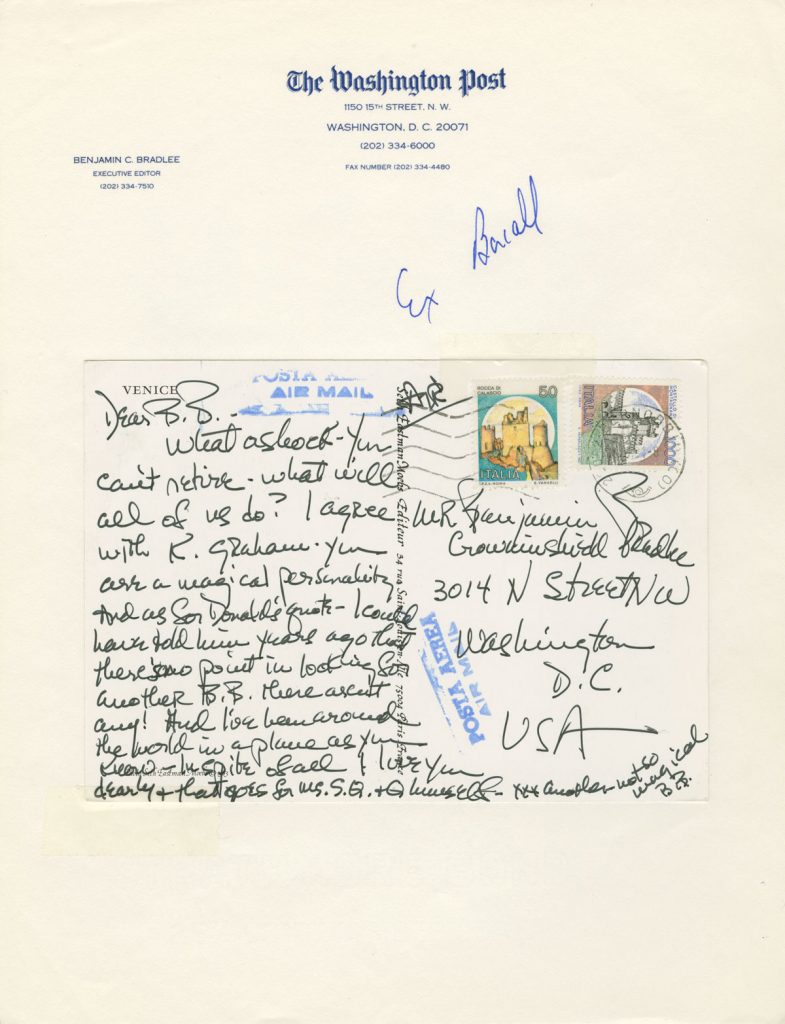 The Washington Post
1150 15TH STREET, N. W.
WASHINGTON, D. C. 20071
(202) 334-6000
FAX NUMBER (202) 334-4480
BENJAMIN C. BRADLEE
EXECUTIVE EDITOR
(202) 334-7510
Ex Bacall
VENICE
POSTA AEREA
AIR MAIL
Dear B.B. -
What a shock - You
can't retire - what will
all of us do? I agree
with K. Graham - you
are a magical personality
And as for Donald's quote - I could
have told him years ago that
there's no point in looking for
another B.B. there aren't
any! And I've been around
the world in a plane as you
know - In spite of all I love you
dearly + that goes for Ms. S.Q. + Q himself - xxx another not so
magical
B.B.
Eastman
Editeur
34 rue
75004 Paris France
ROCCA DI
CALASCIO
50
ITALIA
ITALIA
MR Benjamin
Crowninshield Bradlee
3014 N Street NW
Washington
D.C.
USA
POSTA AEREA
AIR MAIL